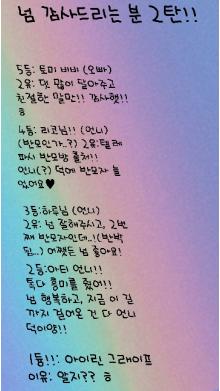 넘 감사드리는 분 2탄!!
5등: 토미 비비 (오빠)
2유: 댓 많이 달아주고
친절한 말만!! 감사햇!!
ㅎ
4등: 리코님!! (언니)
(반모인가..?) 2유:텔레
파시 반모방 출처!!
언니(?) 덕에 반모자 늘
었어요♥
3등:하루님 (언니)
2유: 넘 잘해주시고, 2번
째 반모자인데..!(반박
된...) 어쨌든 넘 좋아요!
2등:아터 언니!!
톡다 흥미를 줬어!!
넘 행복하고, 지금 이 길
까지 걸어온 건 다 언니
덕이양!!
1등!!: 아이린 그래이프
이유: 알지?? ㅎ